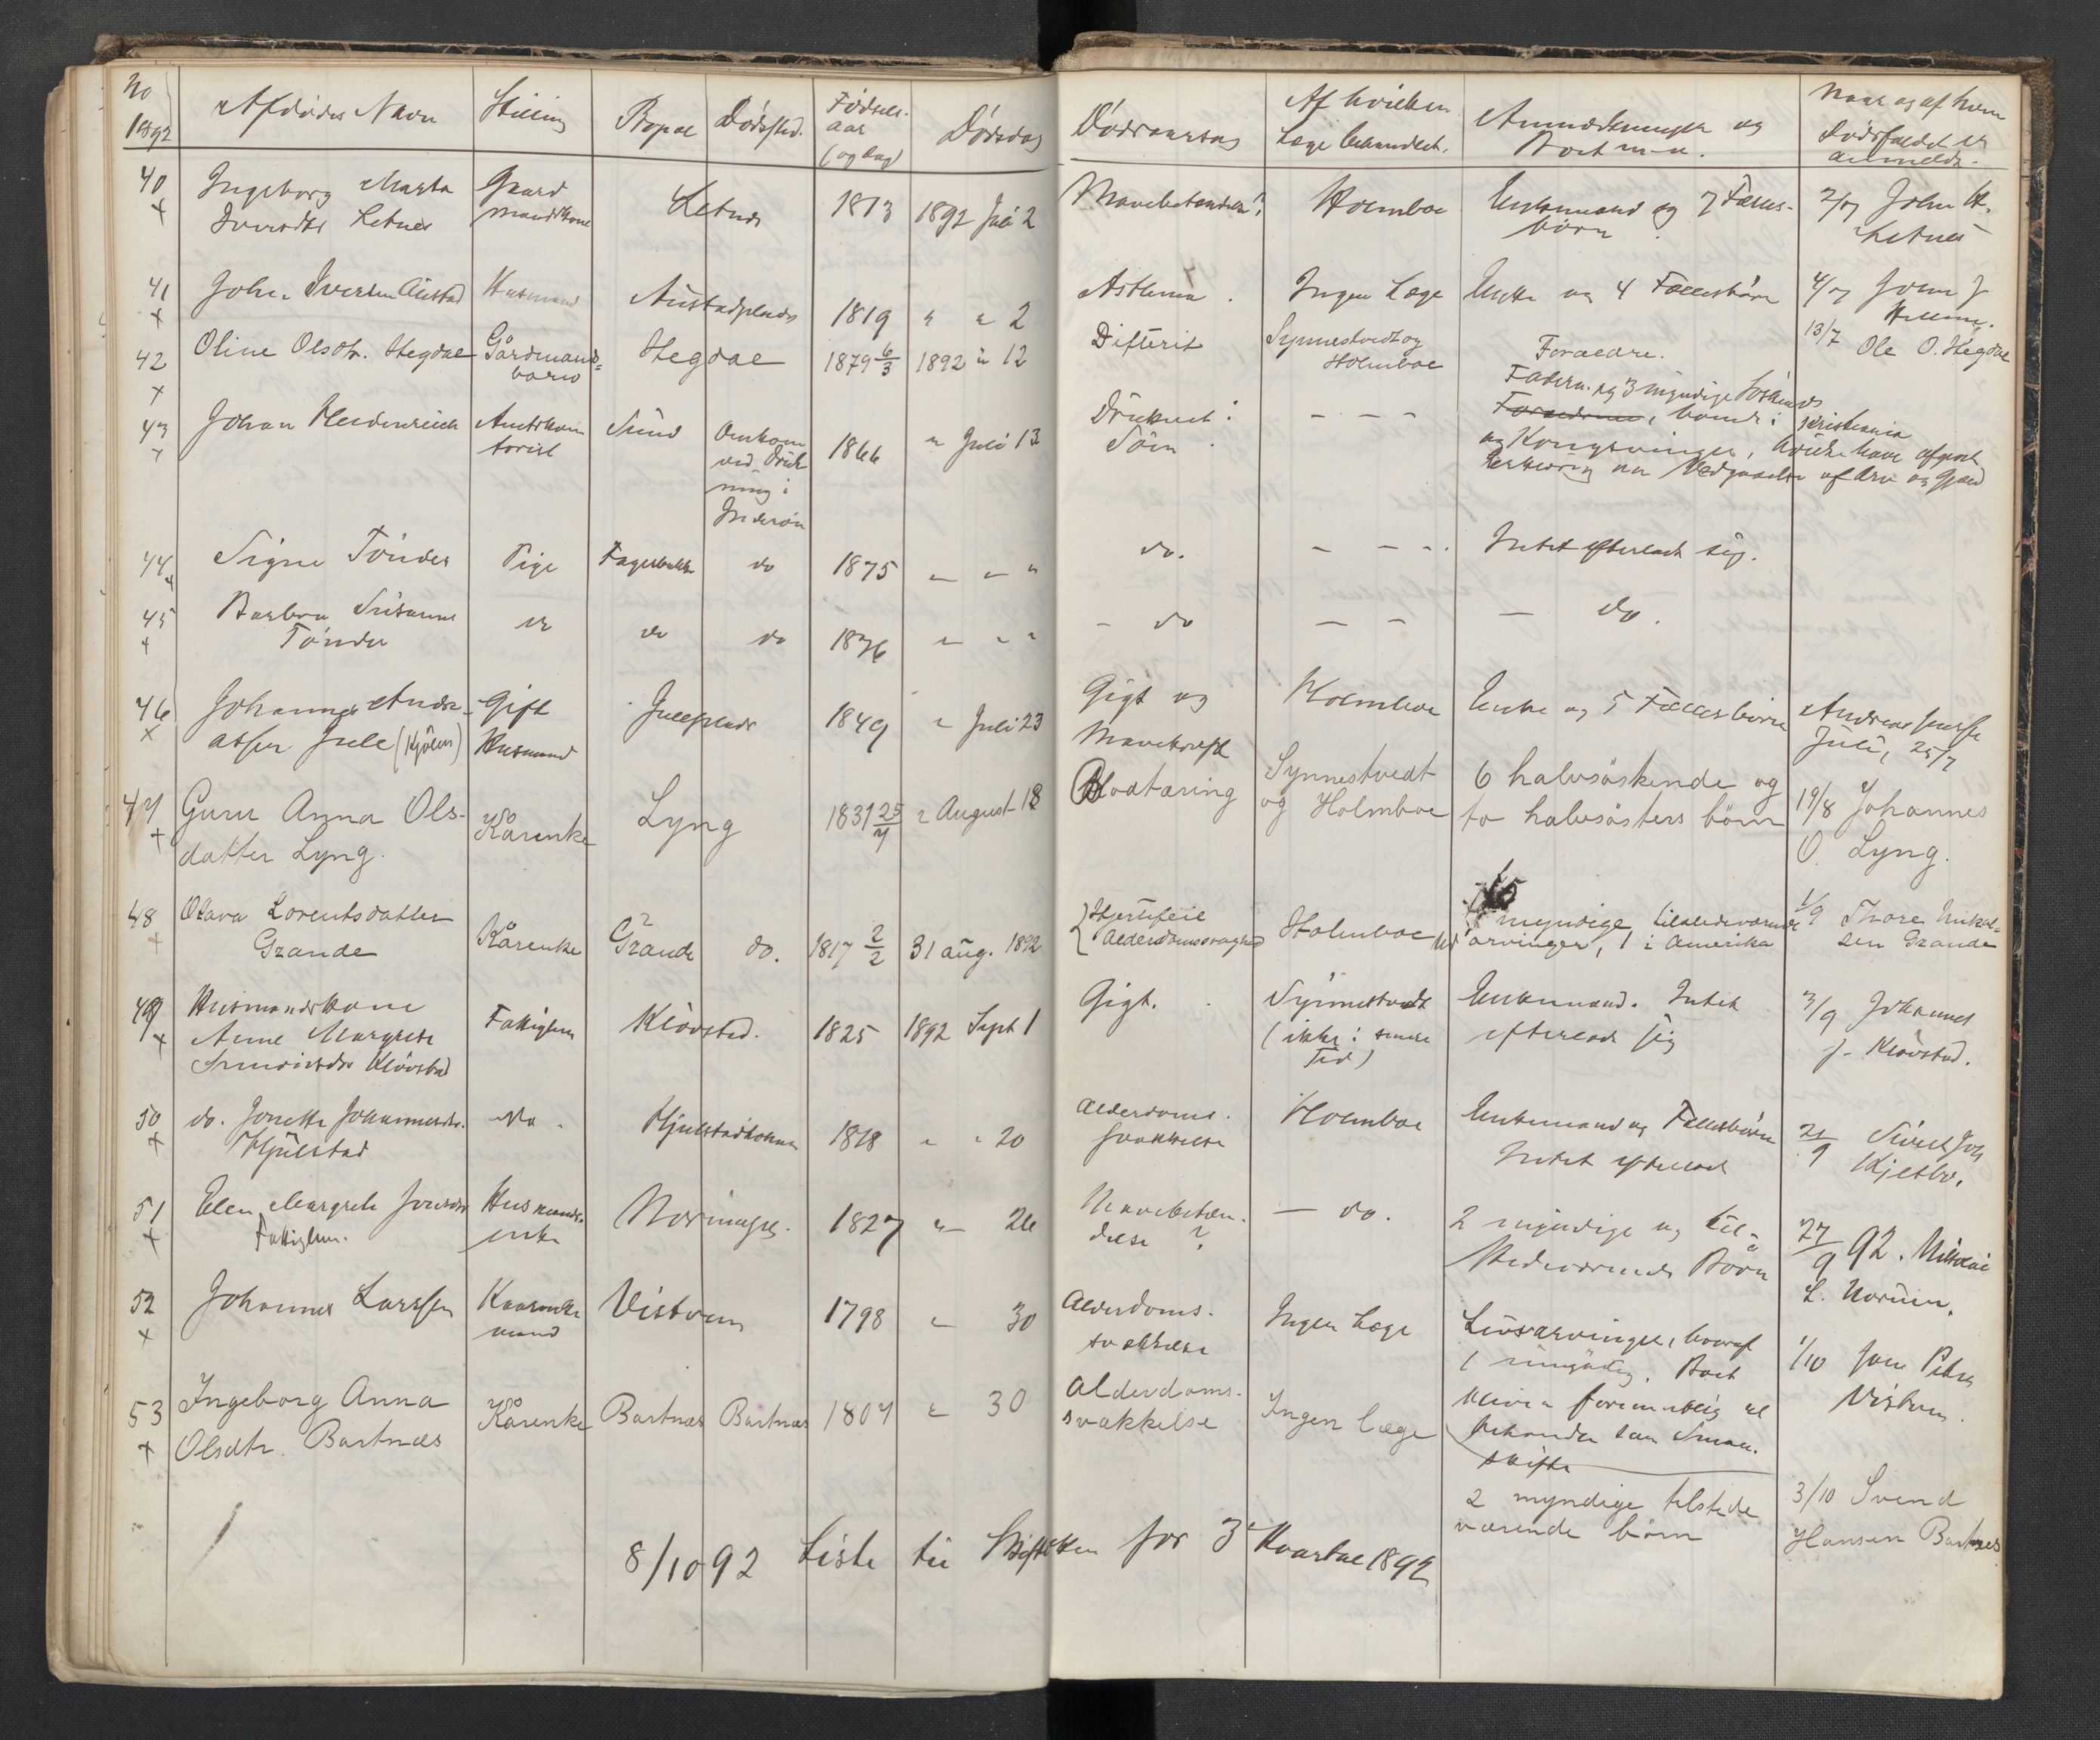 No
1892
Afdødes Navn
Stilling
Bopæl
Dødssted.
Fødsels-
aar
(og dag)
Dødsdag
Dødsaarsag
Af hvilken
Læge behandlet.
Anmærkninger og
Boet m. m.
Naar og af hvem
Dødsfaldet er
anmeldt.
40
+
Ingeborg Marta
Letnes
Gaard
mandskone
Letnes
1813
1892 Juli 2
Mavebetændelse?
Holmboe
Enkemand og 7 Fælles-
børn
2/7 John
Letnes
41
+
John Iversen Austad
Husmand
Austadplads
1819
" " 2
Asthma.
Ingen Læge
Enke og 4 Fællesbørn
4/7 John J
42
+
Oline Olsdtr. Hegdal
Gårdmands-
barn
Hegdal
1879 6/3
1892 " 12
Difterit
Synnestvedt og
Holmboe
Forældre.
13/7 Ole O. Hegdal
43
+
Johan Heidenreich
Amtskon
torist
Sund
Omkom
ved Druk
ning i
Inderøen
1866
" Juli 13
Druknet i
Søen
- - -
Faderen og 3 myndige Søskende
Forældrene, boende i Kristiania
og Kongsvinger, hvilke have afgivet
Erklæring om Vedgaaelse af Arv og Gjæld
44
+
Signe Tønder
Pige
Fagerbakke
do
1875
" " "
do.
- - -
Intet efterladt sig.
45
+
Barbra Susanne
Tønder
do
do
do
1876
" " "
- do
- -
- do.
46
+
Johannes Andre-
assen Jule (Kjølens)
Gift
Husmand
Juleplads
1849
" Juli 23
Gigt og
Mavekræft
Holmboe
Enke og 5 Fællesbørn
Andreas
Juli, 25/7
47
+
Guru Anna Ols-
datter Lyng.
Kårenke
Lyng
1831 25/7
" August 18
Blodtæring
Synnestvedt
og Holmboe
6 halvsøskende og
to halvsøsters børn
19/8 Johannes
O. Lyng.
48
+
Olava Lorentsdatter
Grande
Kårenke
Grande
do.
1817 2/2
31 aug. 1892
Hjertefeil
Alderdomssvaghed
Holmboe
myndige tilstedeværende
arvinger, 1 i Amerika
1/9 Thore Mikal-
sen Grande
49
+
Husmandskone
Anne Margrete
Kløvstad
Fattiglem
Kløvstad.
1825
1892 Sept 1
Gigt.
Synnestvedt
(ikke i senere
Tid)
Enkemand. Intet
efterladt sig
3/9 Johannes
J. Kløvstad.
50
+
do. Jonetta Johannesdtr.
Hjulstad
do.
1818
" " 20
Alderdoms.
svækkelse
Holmboe
Enkemand og Fællesbørn
Intet efterladt
21/9 Sivert Joh
51
+
Elen Margrete Jonsdtr
Fattiglem.
Husmands-
enke
1827
" 26
Mavebetæn-
delse?
- do.
2 myndige og til-
stedeværende Børn
27/9 92. Mikael
L. Norum.
52
+
Johannes Larssen
Kaarenke
mand
Vistven
1798
" 30
Alderdoms-
svækkelse
Ingen Læge
Livsarvinger, hvoraf
1 umyndig. Boet
bliver formentlig at
behandle som
skifte
1/10 Jon Peter
Vistven.
53
+
Ingeborg Anna
Olsdtr. Bartnæs
Kårenke
Bartnæs
Bartnæs
1807
" 30
Alderdoms-
svækkelse
Ingen læge
2 myndige tilstede
værende børn
3/10 Svend
Hansen Bartnes
8/10 92 Liste til Skifteretten for 3' Kvartal 1892